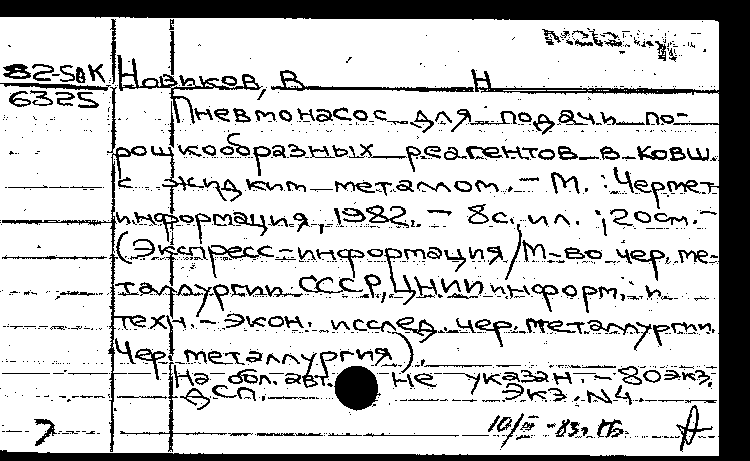 82-50К Новиков, В Н
6325
Пневмонасос для подачи по-
рошкообразных реагентов в ковш
с жидким металлом. - М. : Чермет
информация, 1982. - 8с. ил. ; 20см. -
(Экспресс-информация/М-во чер. ме-
таллургии СССР, ЦНИИ информ. и
техн.-экон. исслед. чер. металлургии.
Чер. металлургия).
На обл. авт. не указан. - 80экз.
ВСП. Экз. N4.
10/III-83г.